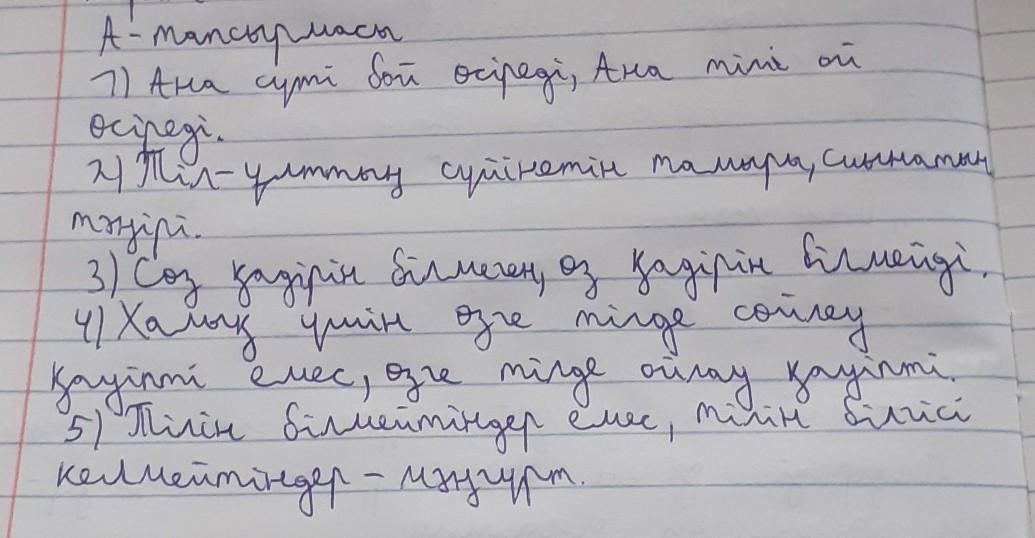 А-тапсырмасы
1) Ана сүті бой өсіреді, Ана тілі ой
өсіреді.
2) Тіл-ұлттың сүйінетін тамыры, сиынатын
тәңірі.
3) Сөз қадірін білмеген, өз қадірін білмейді.
4) Халық үшін өзге тілде сөйлеу
қауіпті емес, өзге тілде ойлау қауіпті.
5) Тілін білмейтіндер емес, тілін білгісі
келмейтіндер - мәңгүрт.